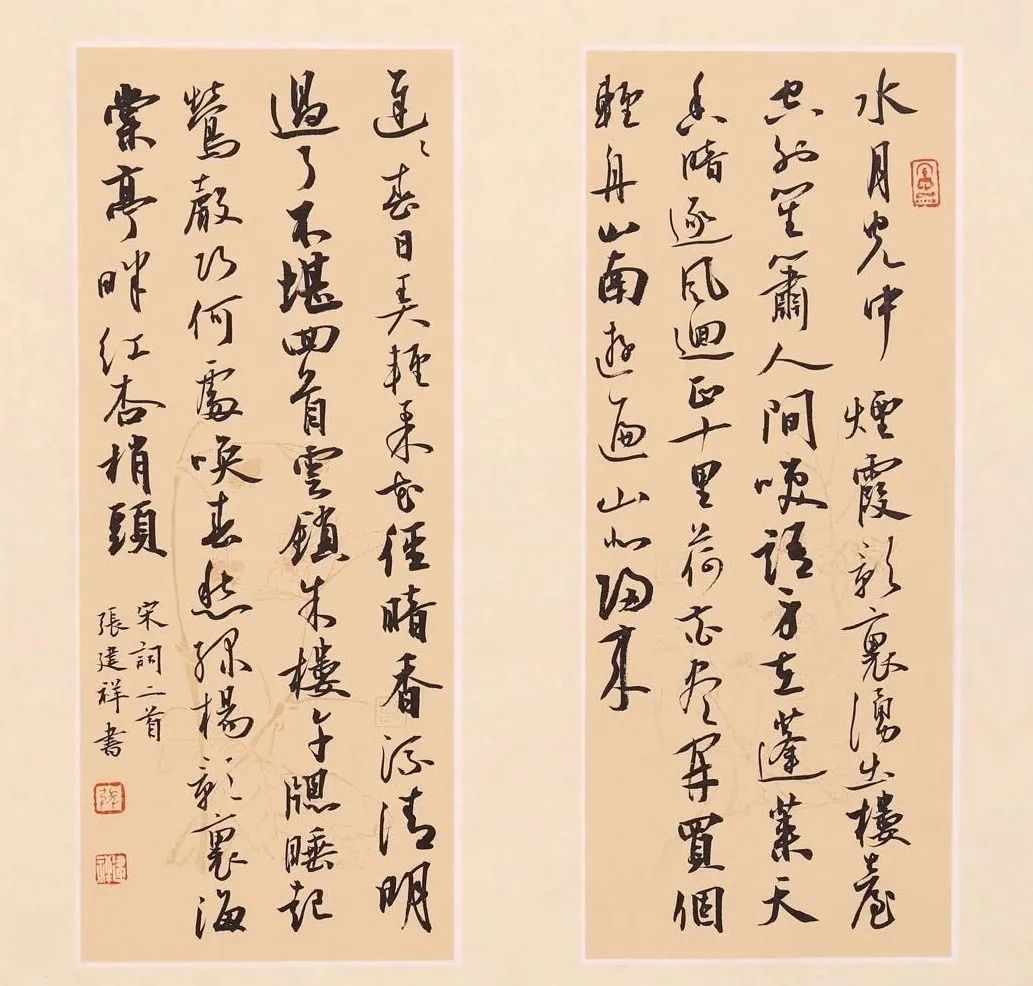 水月光中煙霞影裏湧出樓臺
空外笙簫人間咲語身在蓬萊天
香暗逐風迴正十里荷花盡開買個
輕舟山南遊遍山北歸來
遲〻春日弄輕柔花徑暗香流清明
過了不堪回首雲鎖朱樓午牕睡起
鶯聲巧何處喚春愁綠楊影裏海
棠亭畔紅杏梢頭
宋詞二首
張建祥書